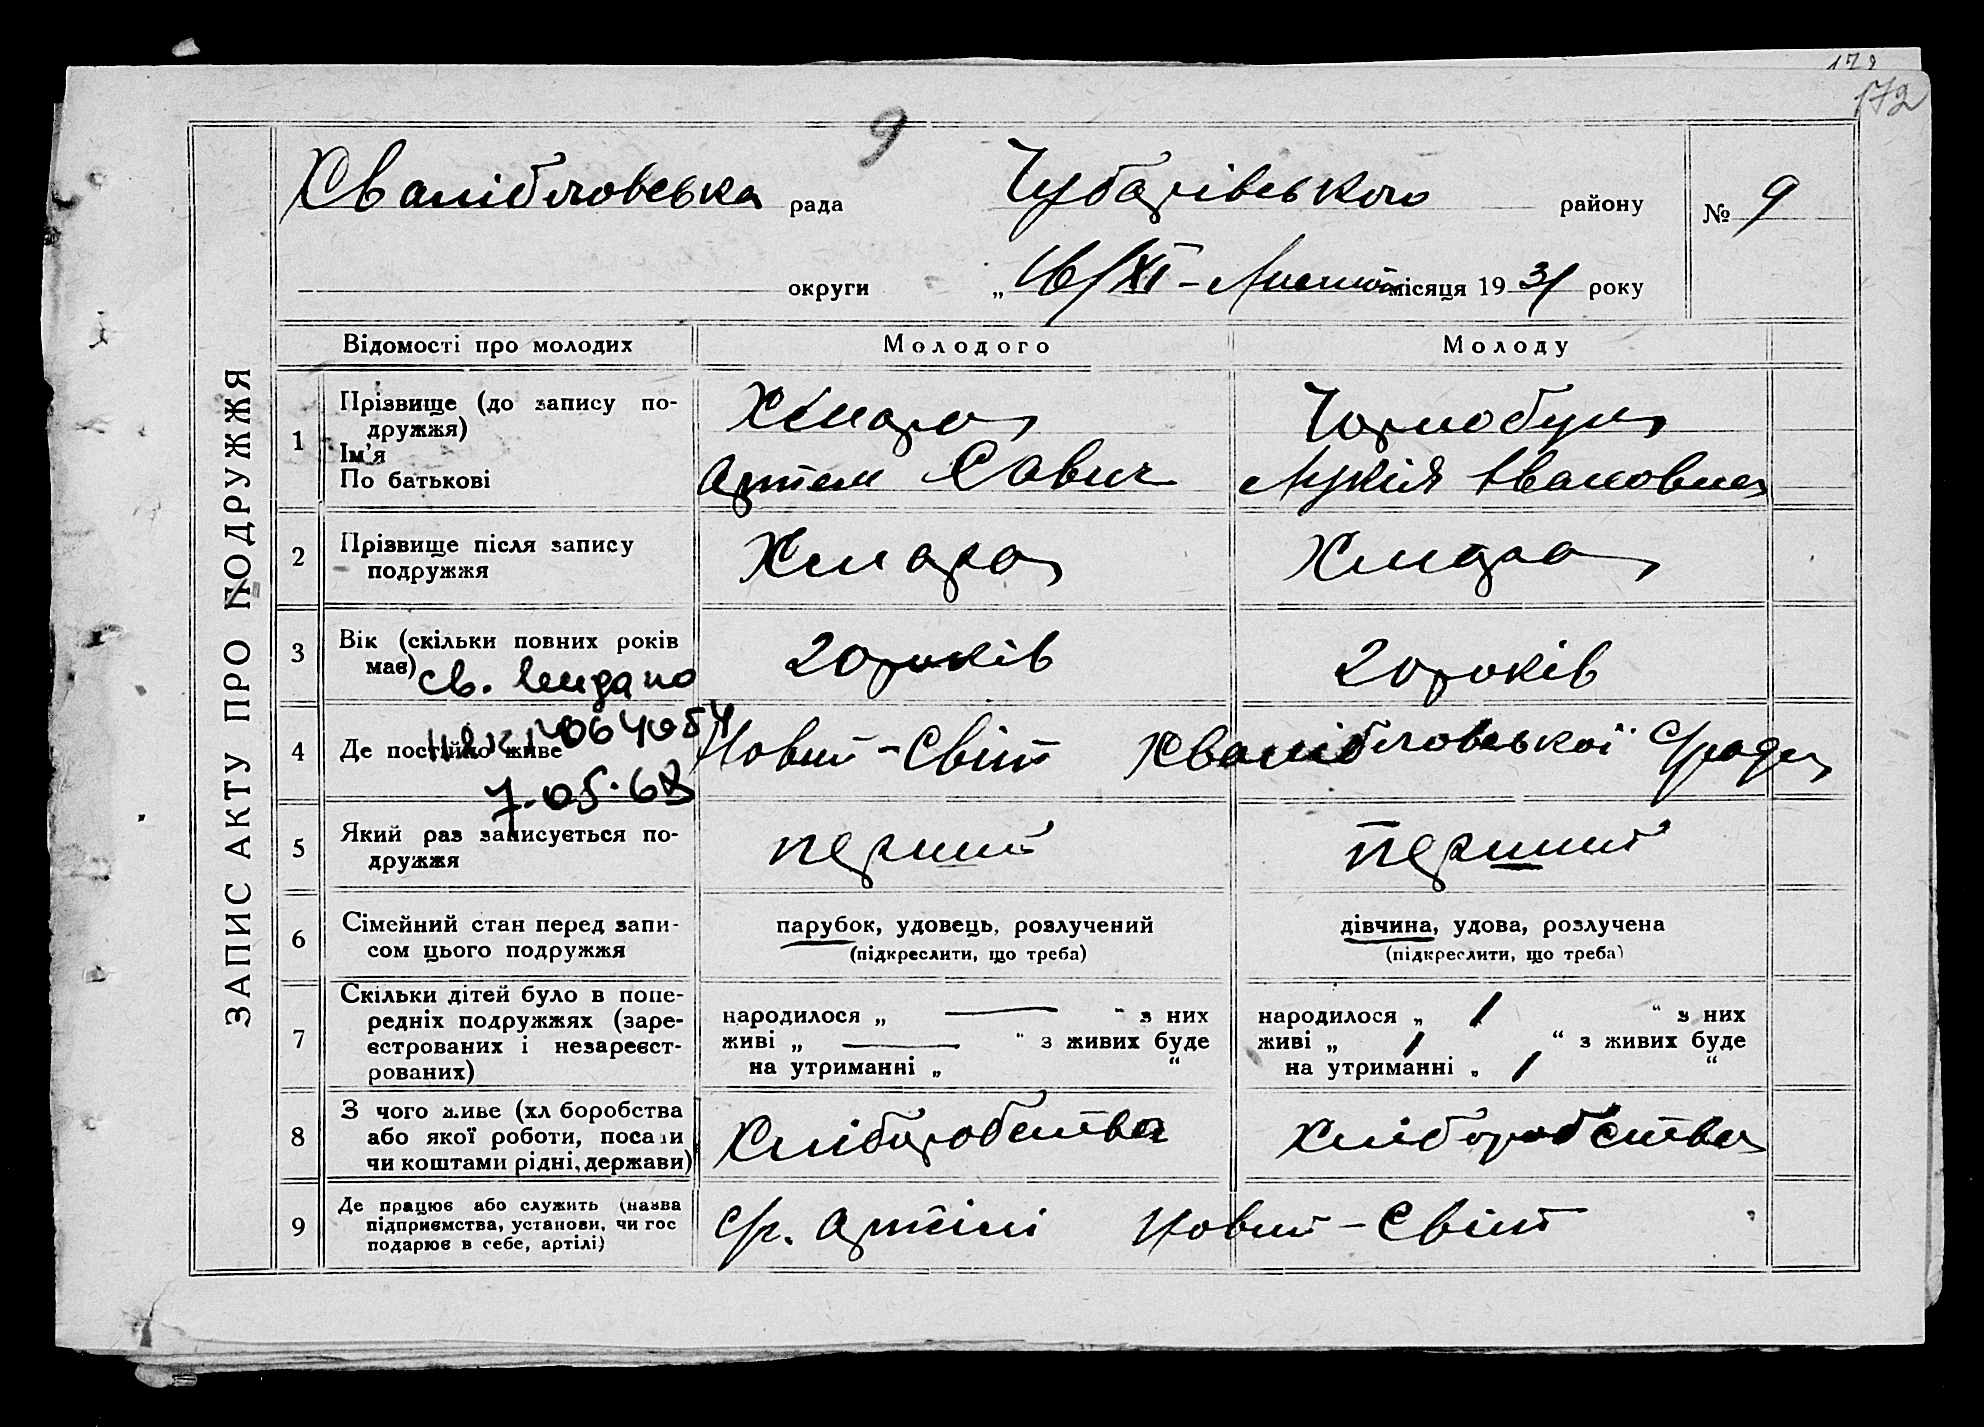 172
9
Хвалібоговська рада Чубарівського району № 9
округи „16/XI – Листоп місяця 1931 року
ЗАПИС АКТУ ПРО ПОДРУЖЖЯ
Відомості про молодих Молодого Молоду
1 Прізвище (до запису по-дружжя) Хмара Чорнобук
Ім'я
По батькові Артем Савич Лукія Івановна
2 Прізвище після запису Хмара Хмара
подружжя
3 Вік (скільки повних років 20 років 20 років
має)
св. видано
4 Де постійно живе Новий-Світ Хвалібоговської с/ради
7.05.68
5 Який раз записується по- перший перший
дружжя
6 Сімейний стан перед запи- парубок, удовець, розлучений дівчина, удова, розлучена
сом цього подружжя (підкреслити, що треба) (підкреслити, що треба)
7 Скільки дітей було в попе-
редніх подружжях (заре- народилося „ — “ з них народилося „ / “ з них
єстрованих і незареєст- живі „ — “ з живих буде живі „ / “ з живих буде
рованих) на утриманні „ “ на утриманні „ / “
8 З чого живе (хліборобства Хліборобства Хліборобства
або якої роботи, посади
чи коштами рідні, держави)
9 Де працює або служить (назва с/г. артілі Новий-Світ
підприємства, установи, чи гос
подарює в себе, артілі)